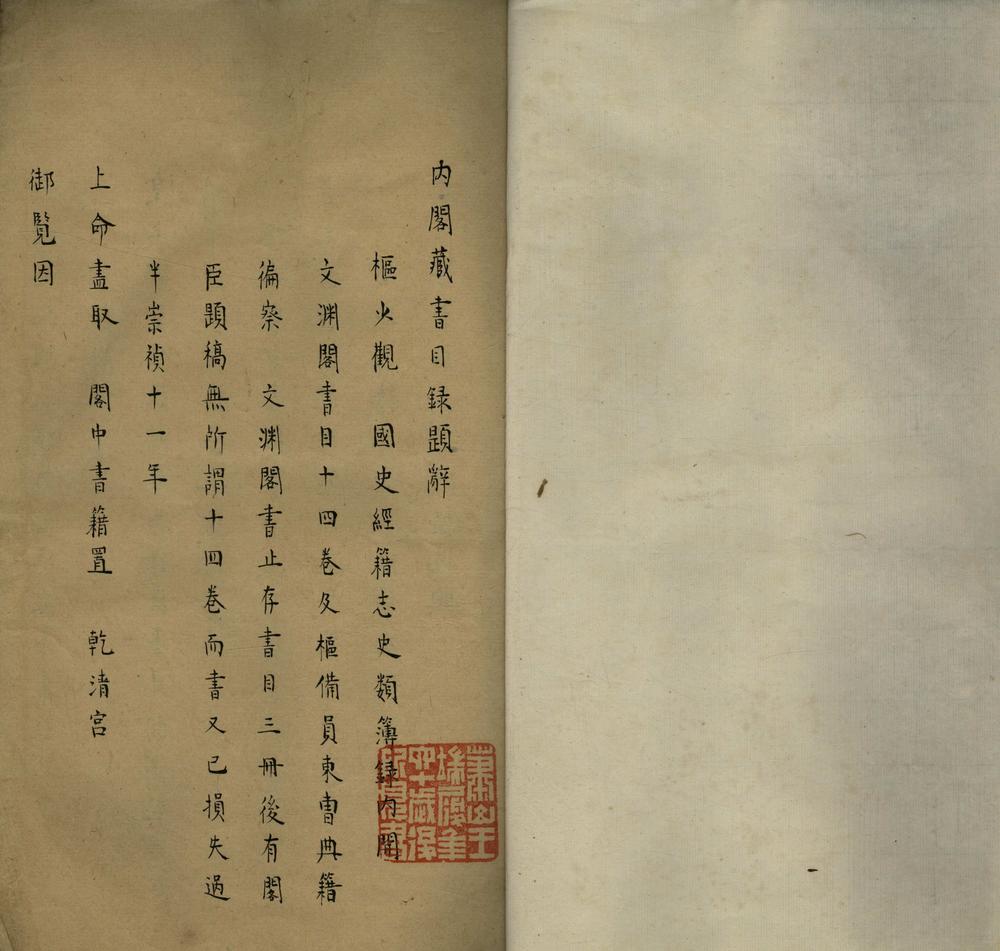 内閣藏書目録題辭
樞火觀　國史經籍志史類簿録内閣
文渊閣書目十四卷及樞備員東曹典籍
徧察　文渊閣書止存書目三冊後有閣
臣題稿無所謂十四卷而書又已損失過
半崇禎十一年
上命盡取　閣中書籍置　乾清宫
御覧因